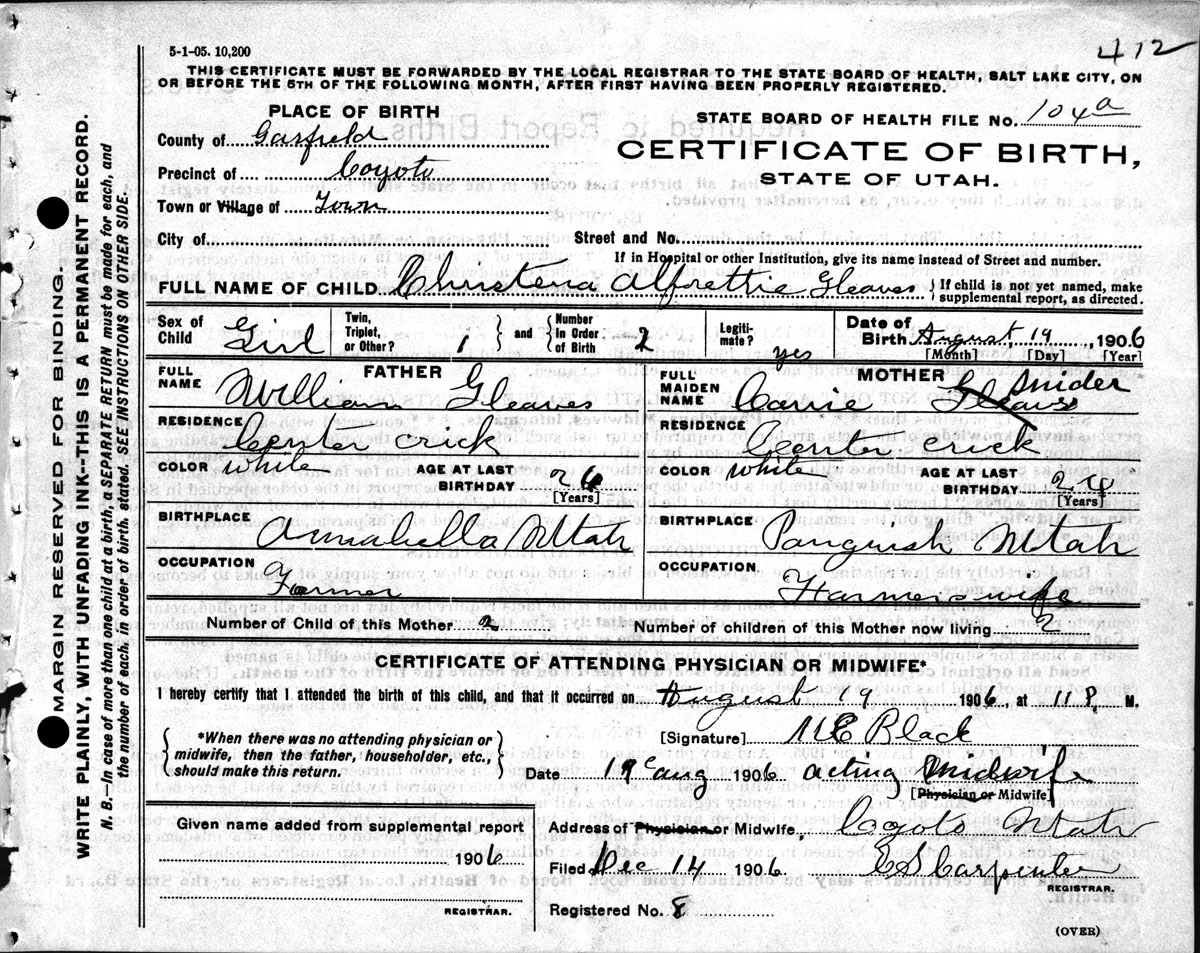 412
5-1-05. 10,200
THIS CERTIFICATE MUST BE FORWARDED BY THE LOCAL REGISTRAR TO THE STATE BOARD OF HEALTH, SALT LAKE CITY, ON
OR BEFORE THE 5TH OF THE FOLLOWING MONTH, AFTER FIRST HAVING BEEN PROPERLY REGISTERED.
PLACE OF BIRTH
STATE BOARD OF HEALTH FILE No. 104a
County of Garfield
CERTIFICATE OF BIRTH,
Precinct of Coyoto
STATE OF UTAH.
Town or Village of Town
City of Street and No.
If in Hospital or other Institution, give its name instead of Street and number.
FULL NAME OF CHILD Christena Alfrettie Gleaves { If child is not yet named, make supplemental report, as directed.
Sex of Child Girl Twin, Triplet, or Other? 1 } and { Number in Order of Birth 2 Legiti-mate? yes Date of Birth August, 19, 1906
[Month] [Day] [Year]
FATHER
FULL NAME William Gleaves
RESIDENCE Center crick
COLOR white AGE AT LAST BIRTHDAY 26
[Years]
BIRTHPLACE Annabella Utah
OCCUPATION Farmer
MOTHER
FULL MAIDEN NAME Carrie Gleaves Snider
RESIDENCE Center crick
COLOR white AGE AT LAST BIRTHDAY
[Years]
BIRTHPLACE Panguish Utah
OCCUPATION Farmers wife
Number of Child of this Mother 2 Number of children of this Mother now living 2
CERTIFICATE OF ATTENDING PHYSICIAN OR MIDWIFE*
I hereby certify that I attended the birth of this child, and that it occurred on August 19 1906, at 11 P. M.
{ *When there was no attending physician or
midwife, then the father, householder, etc.,
should make this return. }
[Signature] M E Black
Date 19 aug 1906 acting Midwife
[Physician or Midwife]
Given name added from supplemental report
1906
REGISTRAR.
Address of Physician or Midwife, Coyoto Utah
Filed Dec 14 1906 E S Carpenter
REGISTRAR.
Registered No. 8
(OVER)
MARGIN RESERVED FOR BINDING.
WRITE PLAINLY, WITH UNFADING INK--THIS IS A PERMANENT RECORD.
N. B.—In case of more than one child at a birth, a SEPARATE RETURN must be made for each, and
the number of each, in order of birth, stated. SEE INSTRUCTIONS ON OTHER SIDE.